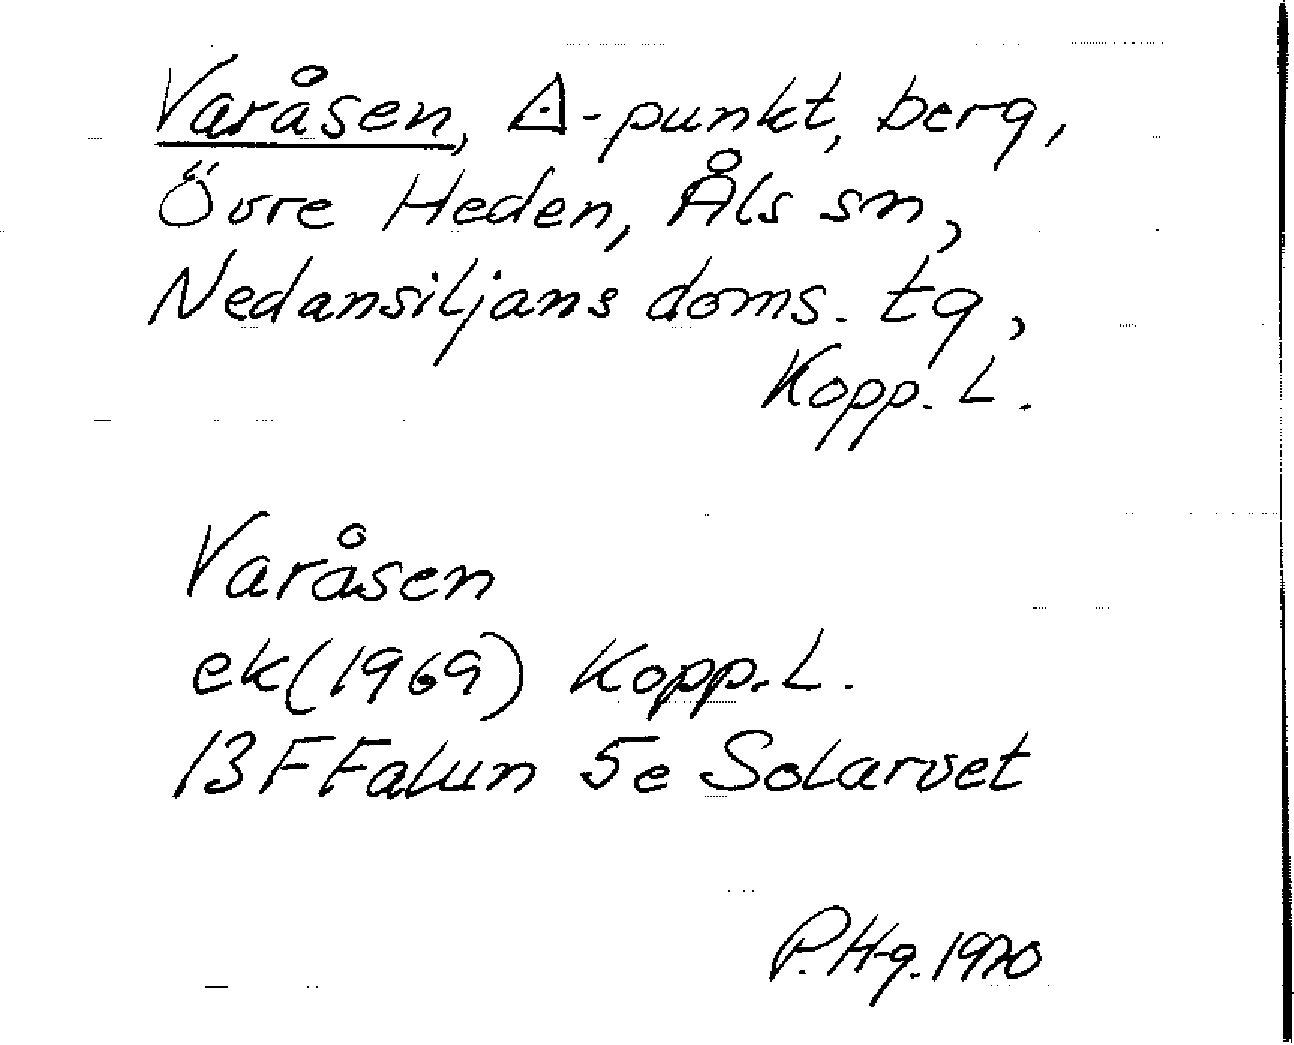 Varåsen, △-punkt, berg,
Övre Heden, Åls sn,
Nedansiljans doms. tg,
Kopp. L.
Varåsen
ek (1969) Kopp. L.
13 F Falun 5e Solarvet
P. Hg. 1970